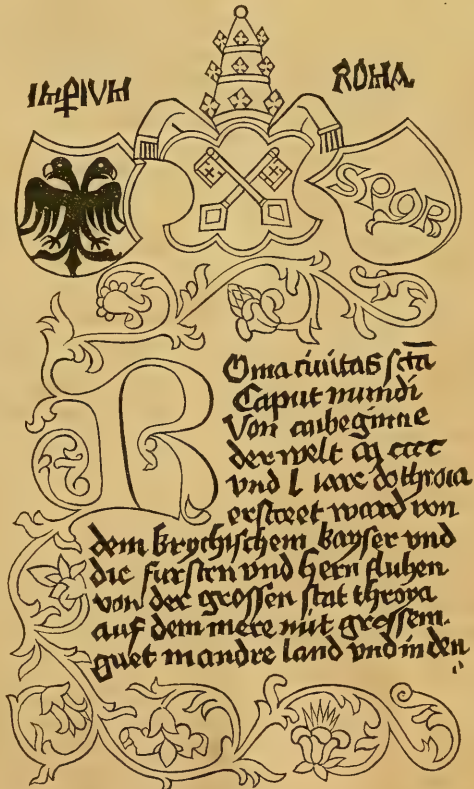 IMPIVM
ROMA
SPQR
Roma ciuitas sct̄a
Caput mundi
Von anbeginne
der welt cccc
vnd l iare do throia
ersteret ward von
dem krychischem kayser vnd
die fursten vnd hern fluhen
von der grossen stat throya
auf dem mere mit grossem
guet in andre land vnd in den